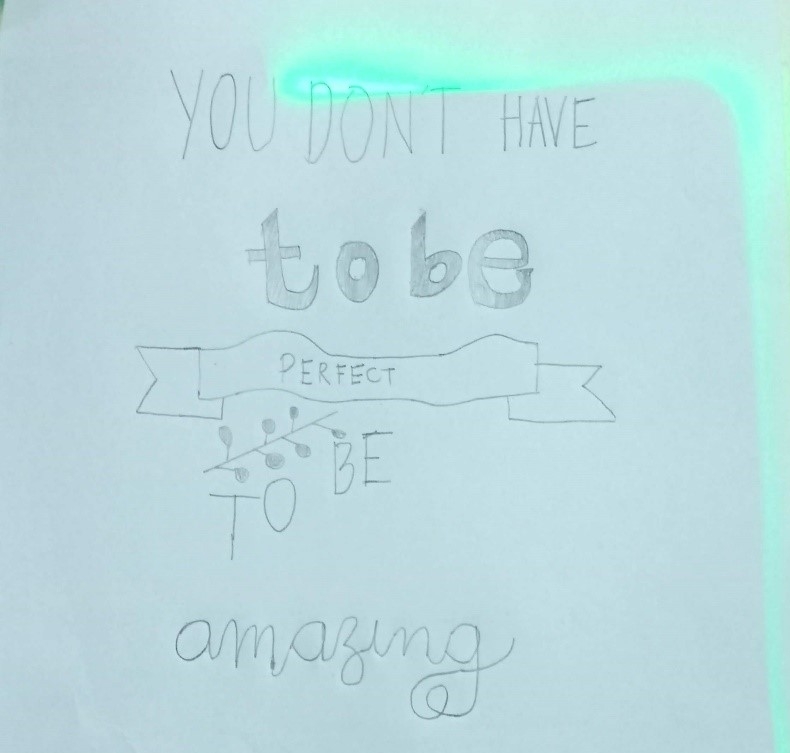 YOU DON'T HAVE
to be
PERFECT
TO BE
amazing